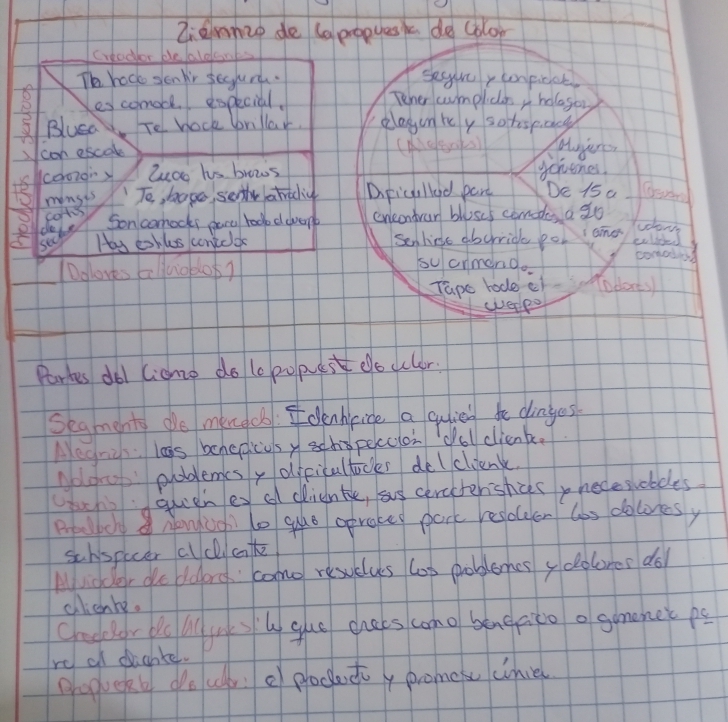 de la propuesta de valor
Creador de alegrías
Te hace sentir segura.
es comod. especial.
Te hace brillar
Blusa
con escote
corazón y
mangas
Luce los brazos
Te hace sentir atractiv
Son comodas para todo el cuerpo
Hay estilos
Productos y servicios
Segura y
Tener cumplidos y halagos
elegante y
(Alegrías)
Mujeres
jóvenes.
De 15 a
20
años
Dificultad para
encontrar blusas comodas
Sentirse aburrida por
su armario.
Tape todo el
cuerpo
(Dolores)
Partes del lienzo de la propuesta de valor.
Segmento de mercado: Identifica a quién te diriges
Alegrías: los beneficios y satisfacción del cliente.
Dolores: problemas y dificultades del cliente.
quién es el cliente, sus características y necesidades
Producto lo que ofreces para resolver los dolores y
satisfacer al cliente
Aliviador de dolores: como resuelves los problemas y dolores del
cliente.
Creador de alegrías: lo que creas como beneficio o pa
ra el cliente.
Propuesta de valor: el producto y promesa única